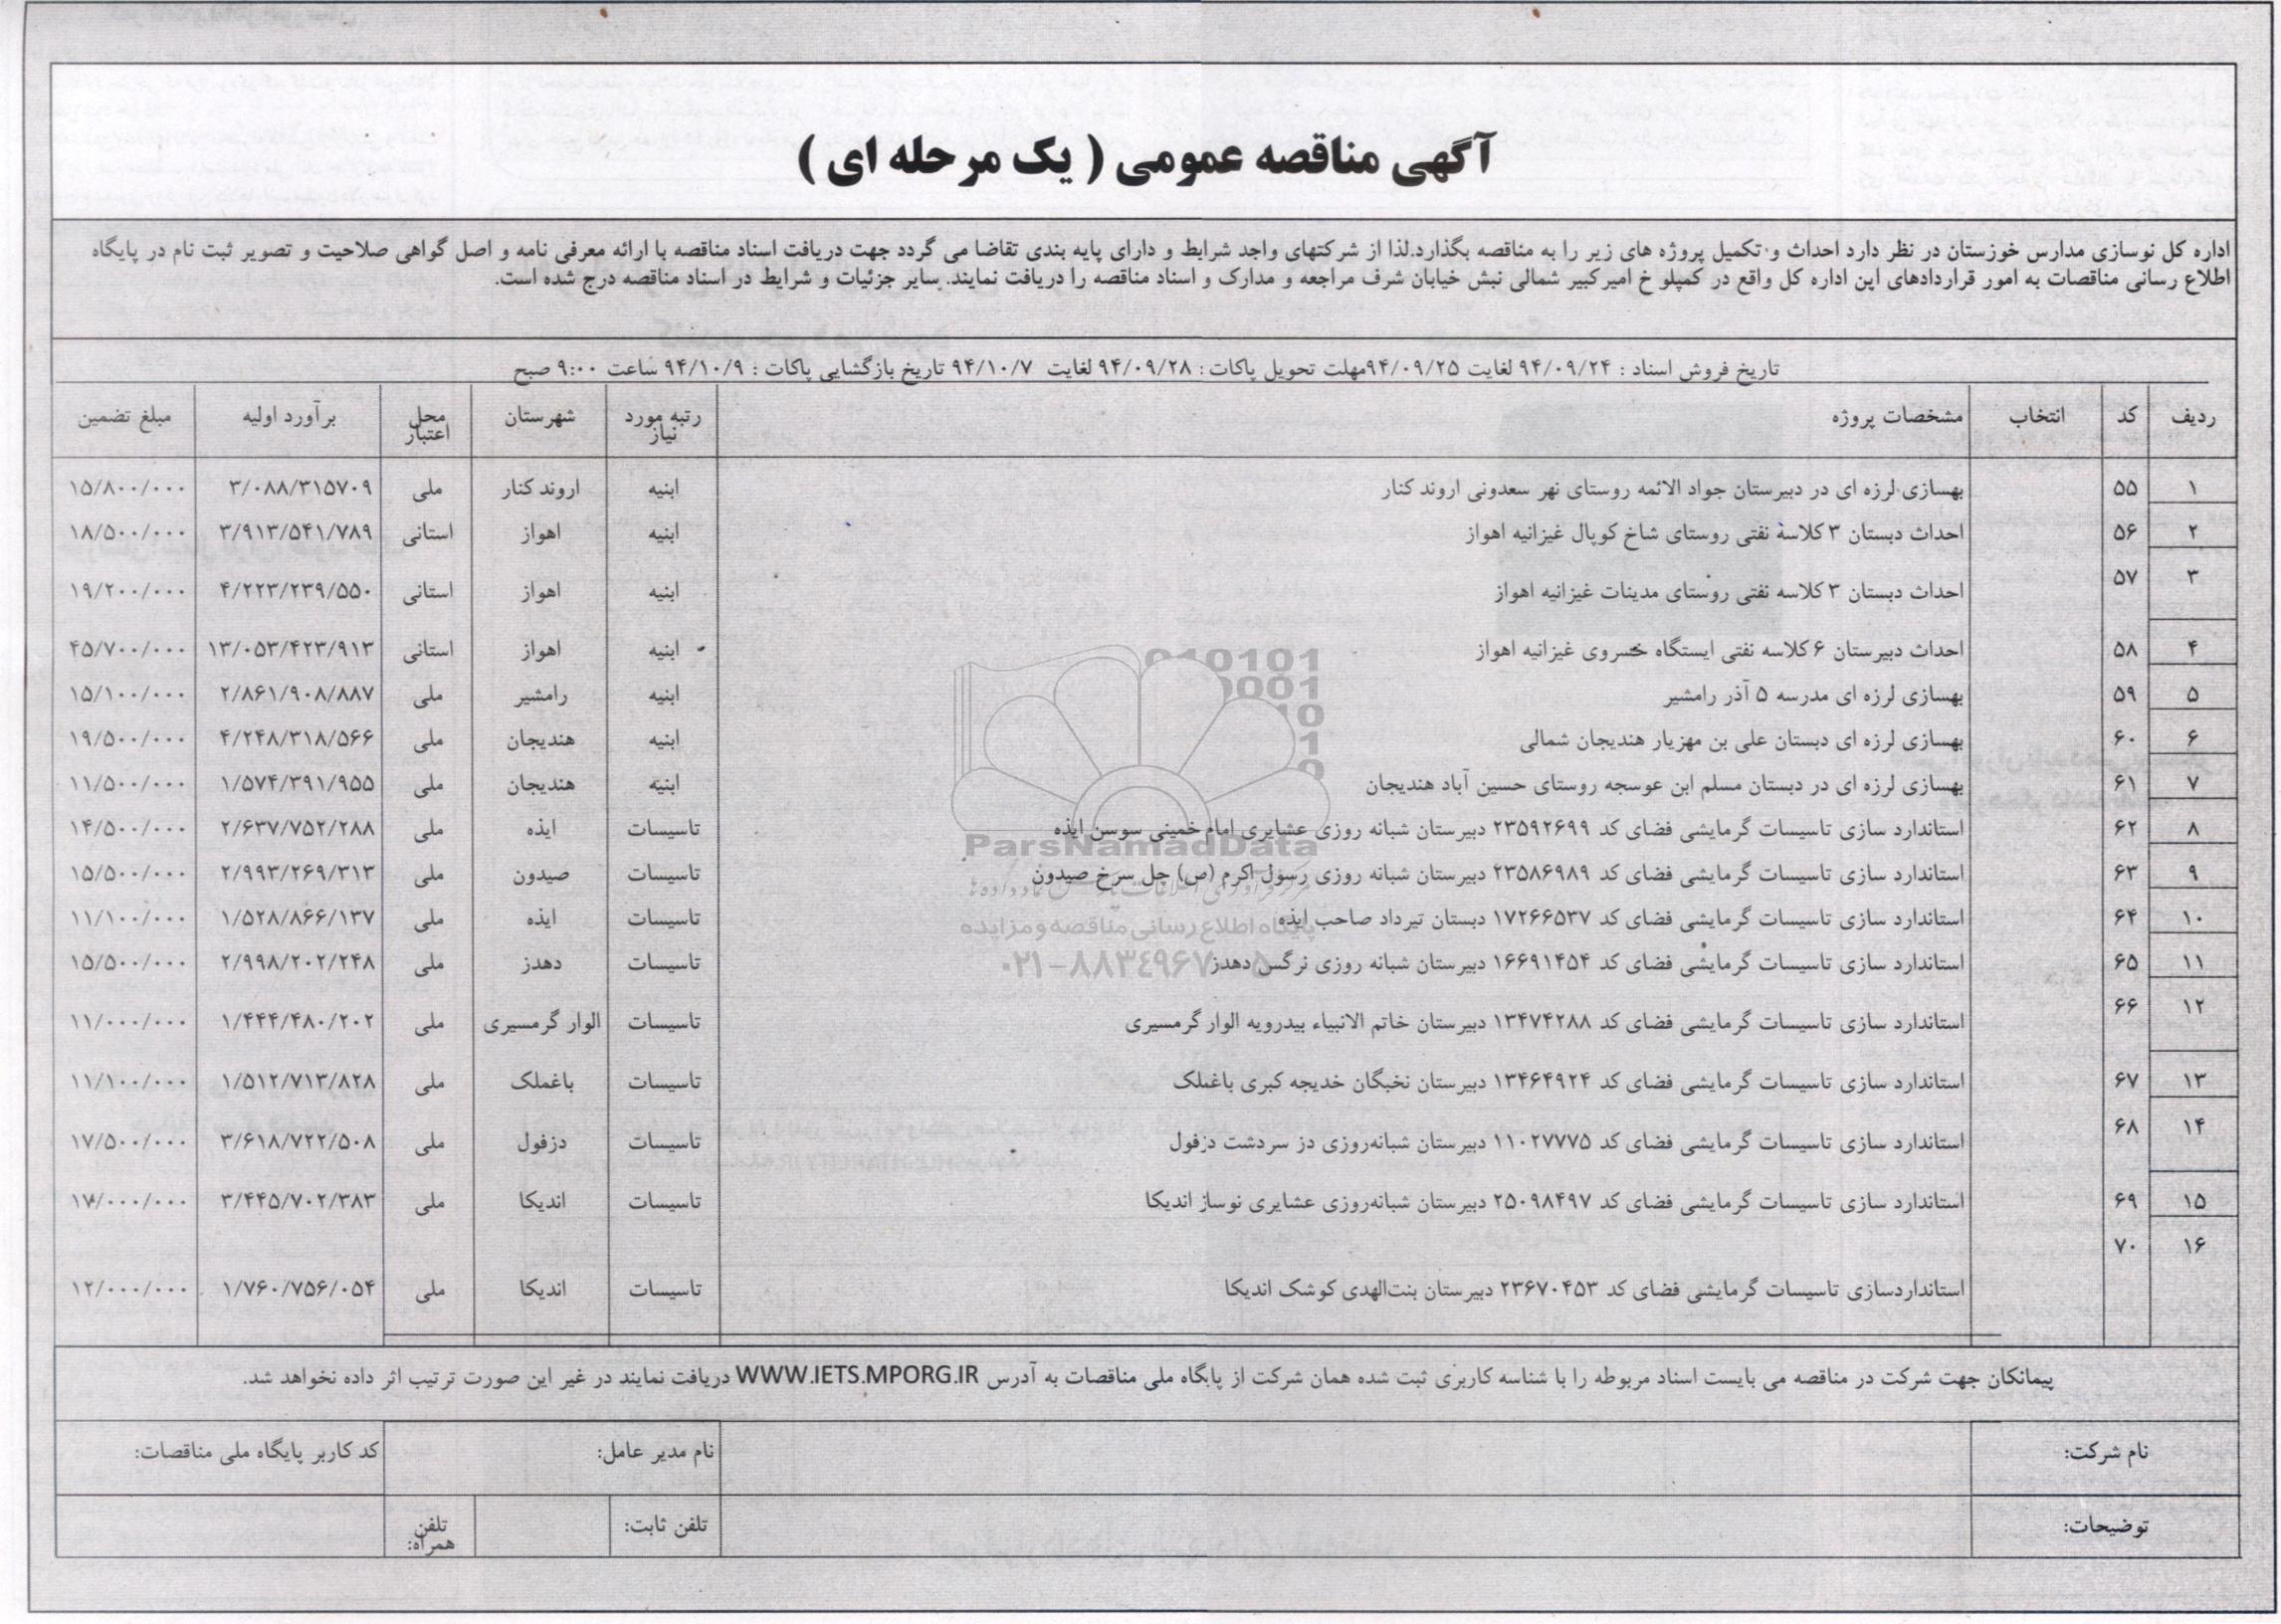 آگهی مناقصه عمومی ( یک مرحله ای )
اداره کل نوسازی مدارس خوزستان در نظر دارد احداث و تکمیل پروژه های زیر را به مناقصه بگذارد.لذا از شرکتهای واجد شرایط و دارای پایه بندی تقاضا می گردد جهت دریافت اسناد مناقصه با ارائه معرفی نامه و اصل گواهی صلاحیت و تصویر ثبت نام در پایگاه
اطلاع رسانی مناقصات به امور قراردادهای این اداره کل واقع در کمپلو خ امیرکبیر شمالی نبش خیابان شرف مراجعه و مدارک و اسناد مناقصه را دریافت نمایند. سایر جزئیات و شرایط در اسناد مناقصه درج شده است.
تاریخ فروش اسناد : ۹۴/۰۹/۲۴ لغایت ۹۴/۰۹/۲۵مهلت تحویل پاکات : ۹۴/۰۹/۲۸ لغایت ۹۴/۱۰/۷ تاریخ بازگشایی پاکات : ۹۴/۱۰/۹ ساعت ۹:۰۰ صبح
ردیف کد انتخاب مشخصات پروژه رتبه مورد نیاز شهرستان محل اعتبار برآورد اولیه مبلغ تضمین
۱ ۵۵ بهسازی لرزه ای در دبیرستان جواد الائمه روستای نهر سعدونی اروند کنار ابنیه اروند کنار ملی ۳/۰۸۸/۳۱۵۷۰۹ ۱۵/۸۰۰/۰۰۰
۲ ۵۶ احداث دبستان ۳ کلاسه نفتی روستای شاخ کوپال غیزانیه اهواز ابنیه اهواز استانی ۳/۹۱۳/۵۴۱/۷۸۹ ۱۸/۵۰۰/۰۰۰
۳ ۵۷ احداث دبستان ۳ کلاسه نفتی روستای مدینات غیزانیه اهواز ابنیه اهواز استانی ۴/۲۲۳/۲۳۹/۵۵۰ ۱۹/۲۰۰/۰۰۰
۴ ۵۸ احداث دبیرستان ۶ کلاسه نفتی ایستگاه خسروی غیزانیه اهواز ابنیه اهواز استانی ۱۳/۰۵۳/۴۲۳/۹۱۳ ۴۵/۷۰۰/۰۰۰
۵ ۵۹ بهسازی لرزه ای مدرسه ۵ آذر رامشیر ابنیه رامشیر ملی ۲/۸۶۱/۹۰۸/۸۸۷ ۱۵/۱۰۰/۰۰۰
۶ ۶۰ بهسازی لرزه ای دبستان علی بن مهزیار هندیجان شمالی ابنیه هندیجان ملی ۴/۲۴۸/۳۱۸/۵۶۶ ۱۹/۵۰۰/۰۰۰
۷ ۶۱ بهسازی لرزه ای در دبستان مسلم ابن عوسجه روستای حسین آباد هندیجان ابنیه هندیجان ملی ۱/۵۷۴/۳۹۱/۹۵۵ ۱۱/۵۰۰/۰۰۰
۸ ۶۲ استاندارد سازی تاسیسات گرمایشی فضای کد ۲۳۵۹۲۶۹۹ دبیرستان شبانه روزی عشایری امام خمینی سوسن ایذه تاسیسات ایذه ملی ۲/۶۳۷/۷۵۲/۲۸۸ ۱۴/۵۰۰/۰۰۰
۹ ۶۳ استاندارد سازی تاسیسات گرمایشی فضای کد ۲۳۵۸۶۹۸۹ دبیرستان شبانه روزی رسول اکرم (ص) چل سرخ صیدون تاسیسات صیدون ملی ۲/۹۹۳/۲۶۹/۳۱۳ ۱۵/۵۰۰/۰۰۰
۱۰ ۶۴ استاندارد سازی تاسیسات گرمایشی فضای کد ۱۷۲۶۶۵۳۷ دبستان تیرداد صاحب ایذه تاسیسات ایذه ملی ۱/۵۲۸/۸۶۶/۱۳۷ ۱۱/۱۰۰/۰۰۰
۱۱ ۶۵ استاندارد سازی تاسیسات گرمایشی فضای کد ۱۶۶۹۱۴۵۴ دبیرستان شبانه روزی نرگس دهدز تاسیسات دهدز ملی ۲/۹۹۸/۲۰۲/۲۴۸ ۱۵/۵۰۰/۰۰۰
۱۲ ۶۶ استاندارد سازی تاسیسات گرمایشی فضای کد ۱۳۴۷۴۲۸۸ دبیرستان خاتم الانبیاء بیدرویه الوار گرمسیری تاسیسات الوار گرمسیری ملی ۱/۴۴۴/۴۸۰/۲۰۲ ۱۱/۰۰۰/۰۰۰
۱۳ ۶۷ استاندارد سازی تاسیسات گرمایشی فضای کد ۱۳۴۶۴۹۲۴ دبیرستان نخبگان خدیجه کبری باغملک تاسیسات باغملک ملی ۱/۵۱۲/۷۱۳/۸۲۸ ۱۱/۱۰۰/۰۰۰
۱۴ ۶۸ استاندارد سازی تاسیسات گرمایشی فضای کد ۱۱۰۲۷۷۷۵ دبیرستان شبانه‌روزی دز سردشت دزفول تاسیسات دزفول ملی ۳/۶۱۸/۷۲۲/۵۰۸ ۱۷/۵۰۰/۰۰۰
۱۵ ۶۹ استاندارد سازی تاسیسات گرمایشی فضای کد ۲۵۰۹۸۴۹۷ دبیرستان شبانه‌روزی عشایری نوساز اندیکا تاسیسات اندیکا ملی ۳/۴۴۵/۷۰۲/۳۸۳ ۱۷/۰۰۰/۰۰۰
۱۶ ۷۰ استانداردسازی تاسیسات گرمایشی فضای کد ۲۳۶۷۰۴۵۳ دبیرستان بنت‌الهدی کوشک اندیکا تاسیسات اندیکا ملی ۱/۷۶۰/۷۵۶/۰۵۴ ۱۲/۰۰۰/۰۰۰
ParsNamadData
پایگاه اطلاع رسانی مناقصه و مزایده
پیمانکان جهت شرکت در مناقصه می بایست اسناد مربوطه را با شناسه کاربری ثبت شده همان شرکت از پایگاه ملی مناقصات به آدرس WWW.IETS.MPORG.IR دریافت نمایند در غیر این صورت ترتیب اثر داده نخواهد شد.
نام شرکت: نام مدیر عامل: کد کاربر پایگاه ملی مناقصات:
توضیحات: تلفن ثابت: تلفن همراه: